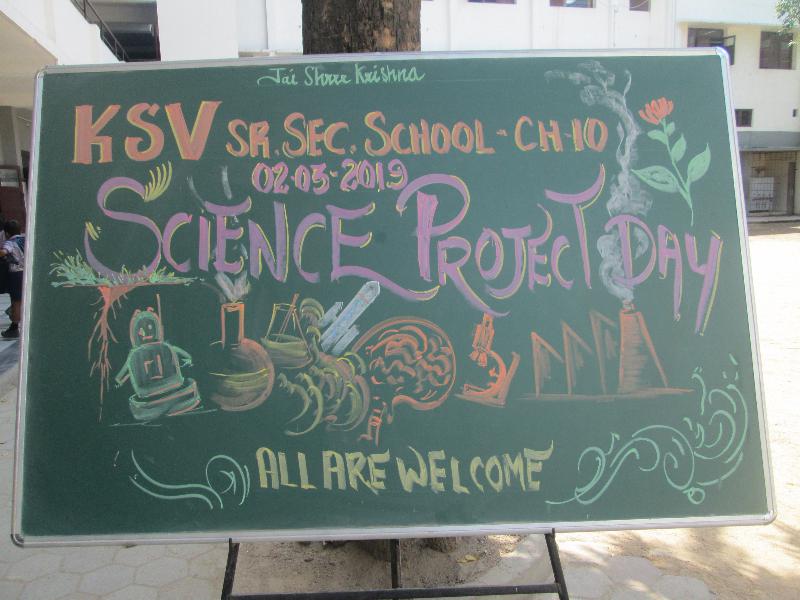 Jai Shree Krishna
KSV SR. SEC. SCHOOL - CH-10
02-03-2019
SCIENCE PROJECT DAY
ALL ARE WELCOME